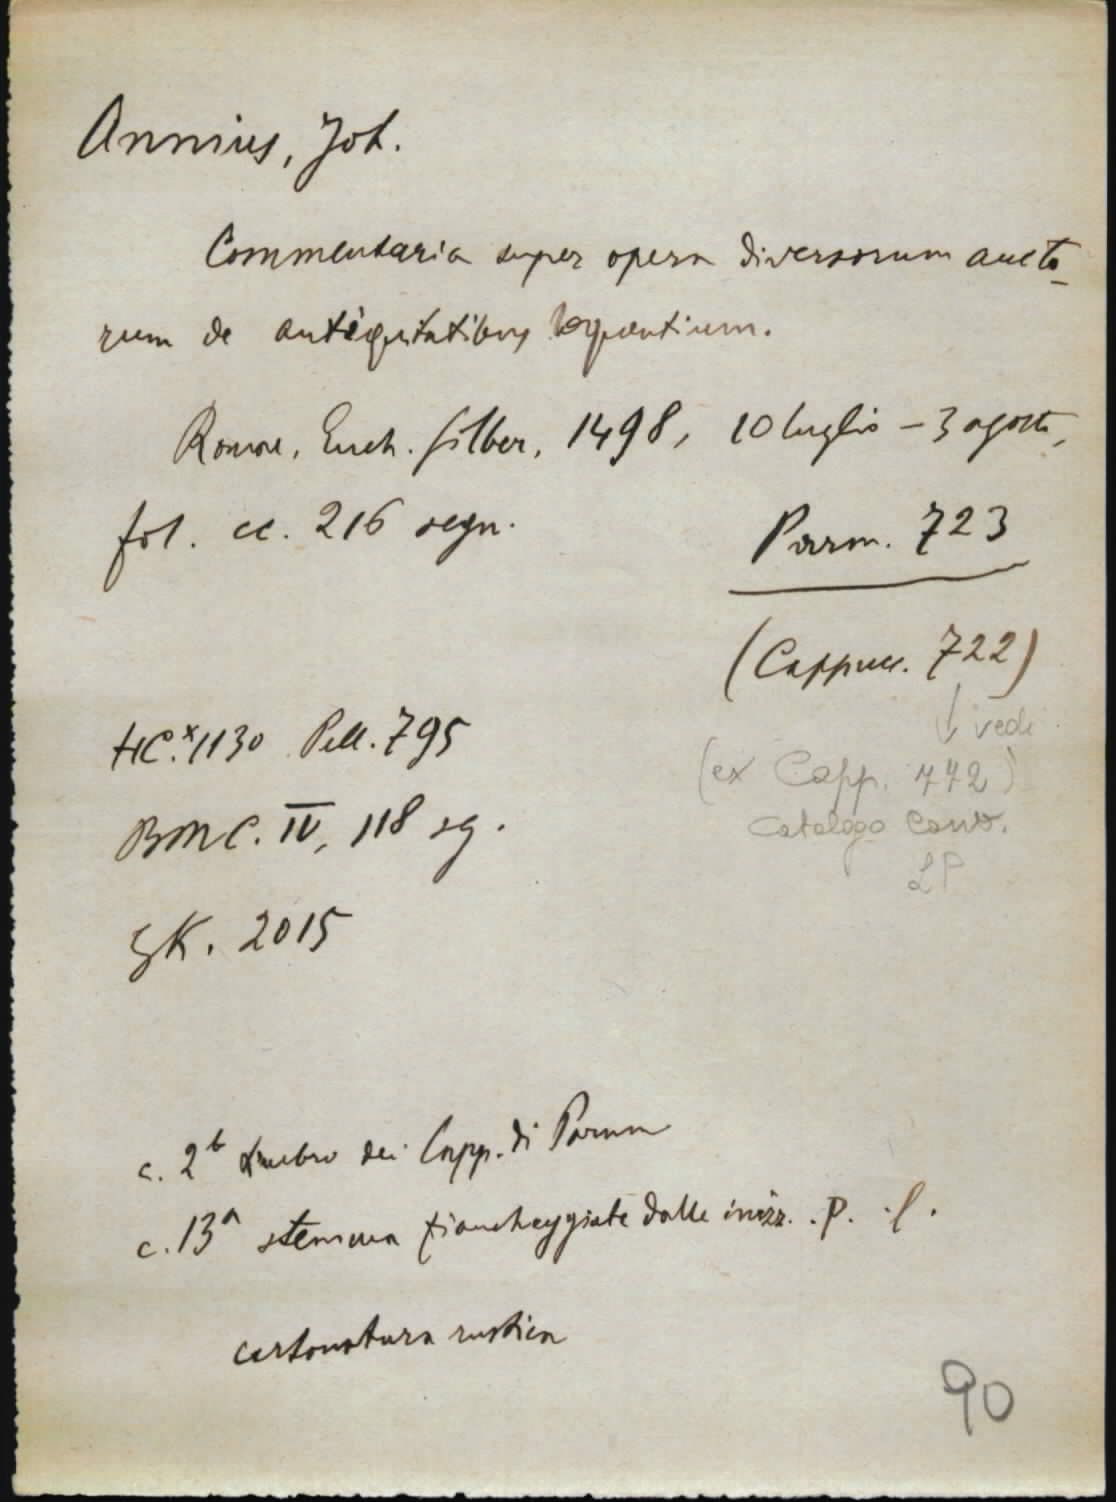 Annius, Joh.
Commentaria super opera diversorum aucto-
rum de antiquitatibus loquentium.
Romae, Euch. Silber, 1498, 10 luglio – 3 agosto,
fol. cc. 216 segn.
Parm. 723
(Cappucc. 722)
↓ vedi
(ex Capp. 772)
Catalogo Conv.
LP
HC.x 1130 Pell. 795
BMC. IV, 118 sg.
GK. 2015
c. 2b timbro dei Capp. di Parma
c. 13a stemma fiancheggiato dalle inizz. .P. .f.
cartonatura rustica
90